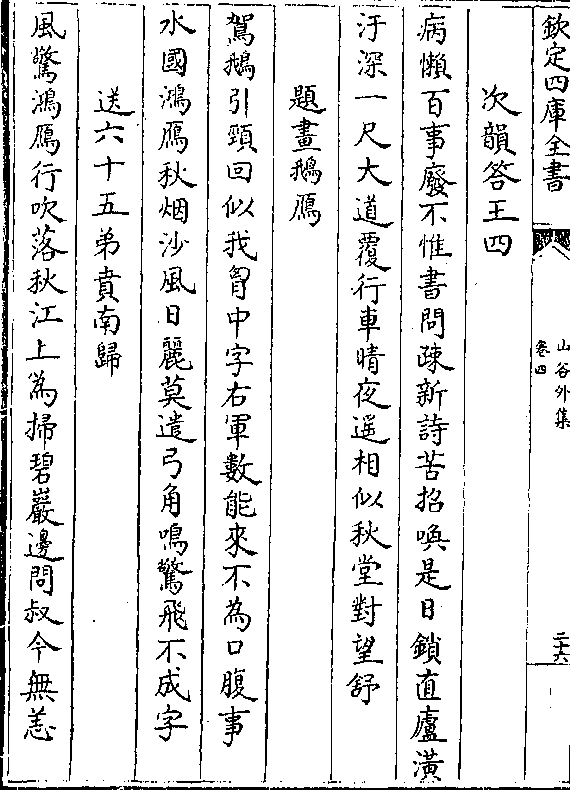 欽定四庫全書
山谷外集
卷四
二十六
次韻答王四
病懶百事廢不惟書問疎新詩苦招喚是日鎖直廬潢
汙深一尺大道覆行車晴夜遥相似秋堂對望舒
題畫鵝鴈
駕鵝引頸回似我胷中字右軍數能來不為口腹事
水國鴻鴈秋烟沙風日麗莫遣弓角鳴驚飛不成字
送六十五弟賁南歸
風驚鴻鴈行吹落秋江上為掃碧巖邊問叔今無恙